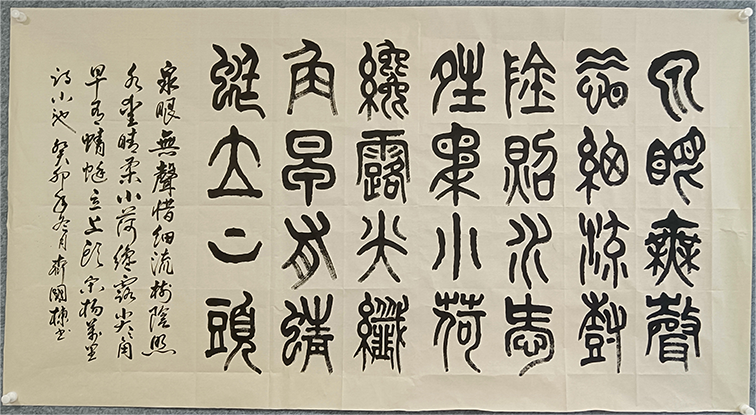 泉眼無聲
惜細流樹
陰照水愛
晴柔小荷
纔露尖纖
角早有蜻
蜓立上頭
泉眼無聲惜細流樹陰照
水愛晴柔小荷纔露尖尖角
早有蜻蜓立上頭宋楊萬里
詩小池癸卯年冬月國棟書